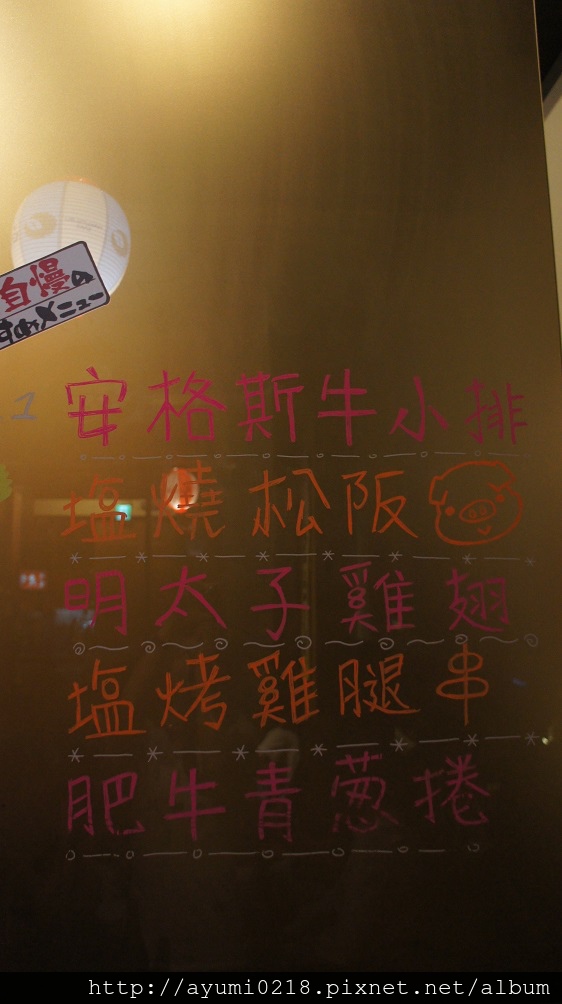 自慢の
おすすめメニュー
1
安格斯牛小排
塩燒松阪
明太子雞翅
塩烤雞腿串
肥牛青葱捲
http://ayumi0218.pixnet.net/album